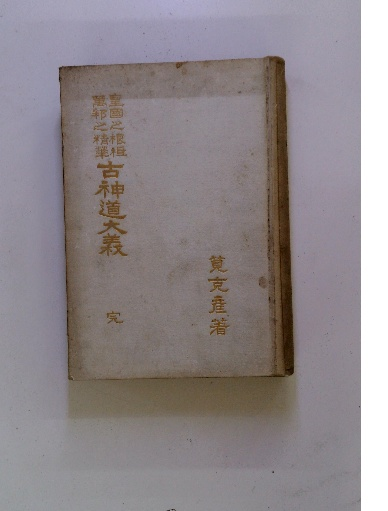 筧克彦著
皇國之根柢
萬邦之精華
古神道大義
完